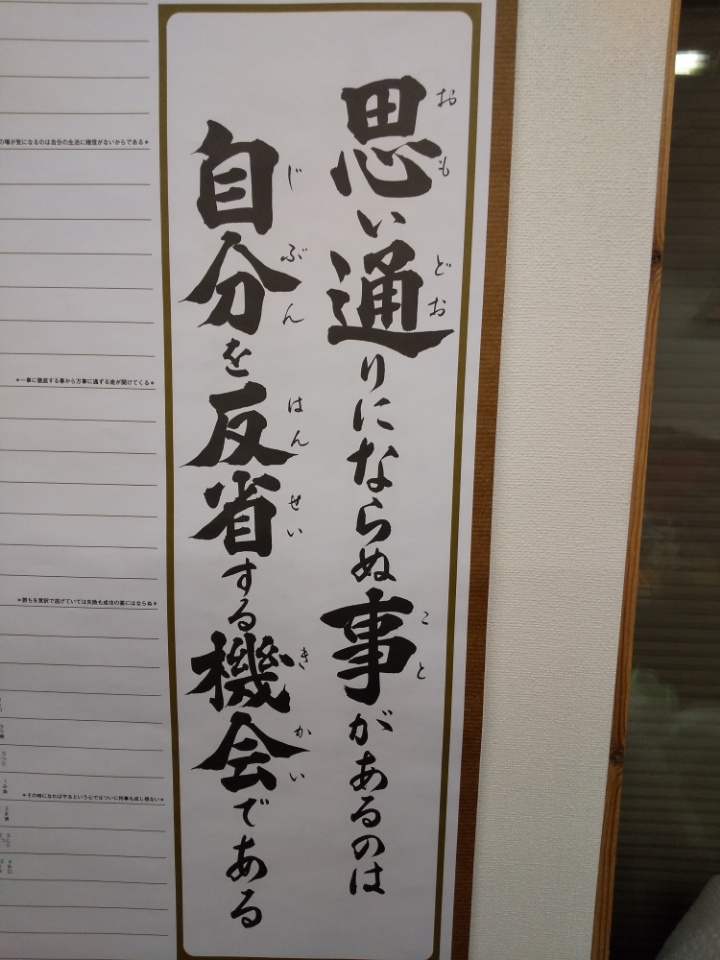 思い通りにならぬ事があるのは
おも どお こと
自分を反省する機会である
じ ぶん はん せい き かい
の噂が気になるのは自分の生活に確信がないからである＊
＊一事に徹底する事から万事に通ずる途が開けてくる＊
＊誤ちを言訳で逃げていては失敗も成功の基にはならぬ＊
＊その時になればやるという心ではついに何事も成し得ない＊